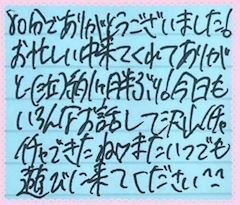 80分でありがとうございました!
お忙しい中来てくれてありが
と(泣)約1ヶ月半ぶり!今日も
いろんなお話して沢山イチャ
イチャできたねまたいつでも
遊びに来てください^^